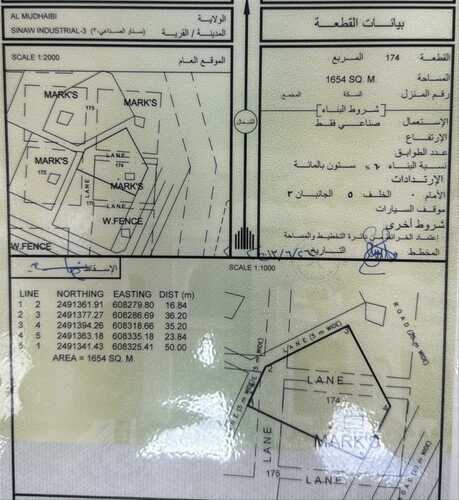 AL MUDHAIBI
الولاية
SINAW INDUSTRIAL-3
المدينة / القرية
SCALE 1:2000
الموقع العام
MARK'S
MARK'S
175
MARK'S
MARK'S
LANE
LANE
174
W.FENCE
W.FENCE
بيانات القطعة
القطعة 174 المربع
المساحة 1654 SQ. M
رقم المنزل السكة المجمع
شروط البناء
الإستعمال صناعي فقط
الإرتفاع
عدد الطوابق
نسبة البناء ٦٠٪ ستون بالمائة
الإرتدادات
الأمام الخلف ٥ الجانبان ٣
موقف السيارات
شروط أخرى
المخطط
التاريخ
الشمال
الإسقاط
SCALE 1:1000
LINE NORTHING EASTING DIST (m)
1 2 2491361.91 608279.80 16.84
2 3 2491377.27 608286.69 36.20
3 4 2491394.26 608318.66 35.20
4 5 2491363.18 608335.18 23.84
5 1 2491341.43 608325.41 50.00
AREA = 1654 SQ. M
LANE (5 m WIDE)
LANE
174
MARK'S
LANE
175
LANE